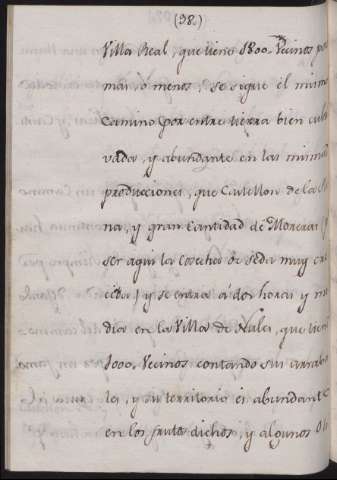 (98.)
Villa Real, que tiene 1800. Vecinos poco
mas, ò menos: se sigue el mismo
Camino por entre tierra bien culti
vada, y abundante en las mismas
producciones, que Castellon de la Pla
na, y gran Cantidad de Moreras (por
ser aqui la Cosecha de Seda muy cre
cida) y se entra à dos horas y me
dia en la Villa de Nules, que tiene
1000. Vecinos contando sus arraba
les, y su territorio es abundante
en los frutos dichos, y algunos Oli